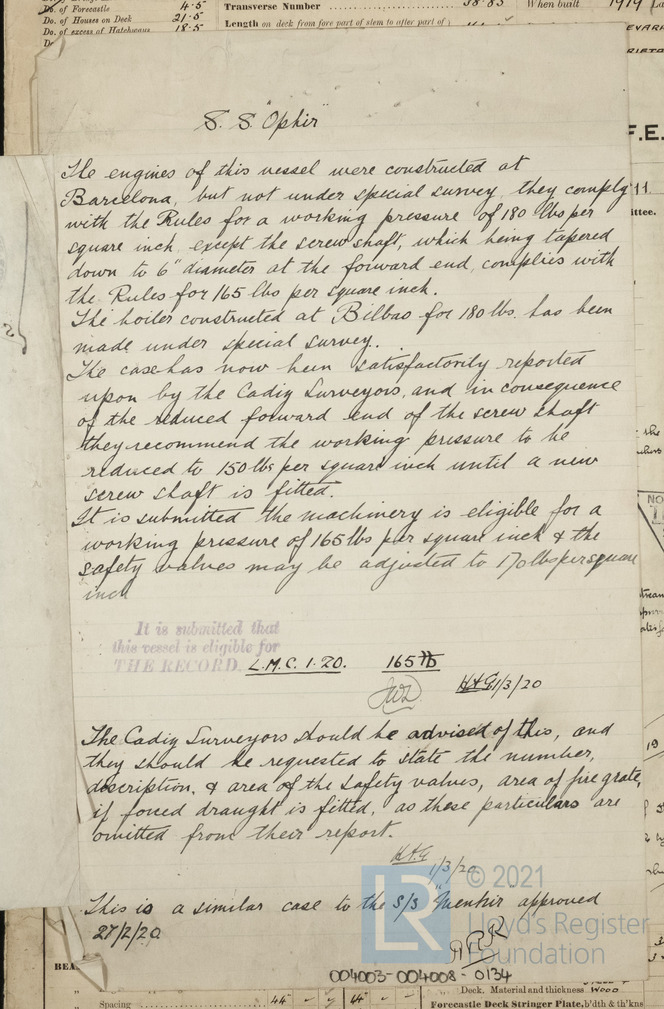 Do. of Forecastle 4.5
Do. of Houses on Deck 21.5
Do. of excess of Hatchways 18.5
Transverse Number 38.83
When built 1919
Length on deck from fore part of stem to after part of
S. S. "Ophir"
The engines of this vessel were constructed at
Barcelona, but not under special survey, they comply
with the Rules for a working pressure of 180 lbs per
square inch, except the screw shaft, which being tapered
down to 6" diameter at the forward end, complies with
the Rules for 165 lbs per square inch.
The boiler constructed at Bilbao for 180 lbs. has been
made under special survey.
The case has now been satisfactorily reported
upon by the Cadiz Surveyors, and in consequence
of the reduced forward end of the screw shaft
they recommend the working pressure to be
reduced to 150 lbs per square inch until a new
screw shaft is fitted.
It is submitted the machinery is eligible for a
working pressure of 165 lbs per square inch & the
safety valves may be adjusted to 170 lbs per square
inch
It is submitted that
this vessel is eligible for
THE RECORD. L.M.C. 1.20. 165 lb
1/3/20
The Cadiz Surveyors should be advised of this, and
they should be requested to state the number,
discription, & area of the safety valves, area of fire grate,
if forced draught is fitted, as these particulars are
omitted from their report.
1/3/20
This is a similar case to the S/S approved
27/2/20
© 2021
LR Lloyd's Register
Foundation
004003-004008-0134
Spacing 44
Deck. Material and thickness WOOD
Forecastle Deck Stringer Plate, b'dth & th'kns